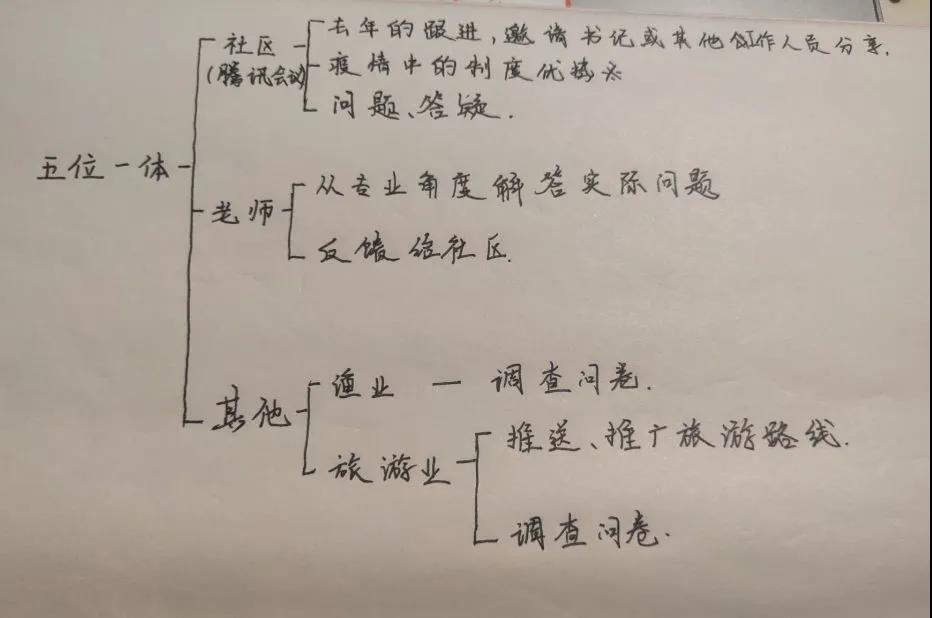 社区
(腾讯会议)
去年的跟进,邀请书记或其他工作人员分享.
疫情中的制度优势※
问题、答疑.
五位一体
老师
从专业角度解答实际问题
反馈给社区.
其他
渔业 — 调查问卷.
旅游业
推送、推广旅游路线.
调查问卷.